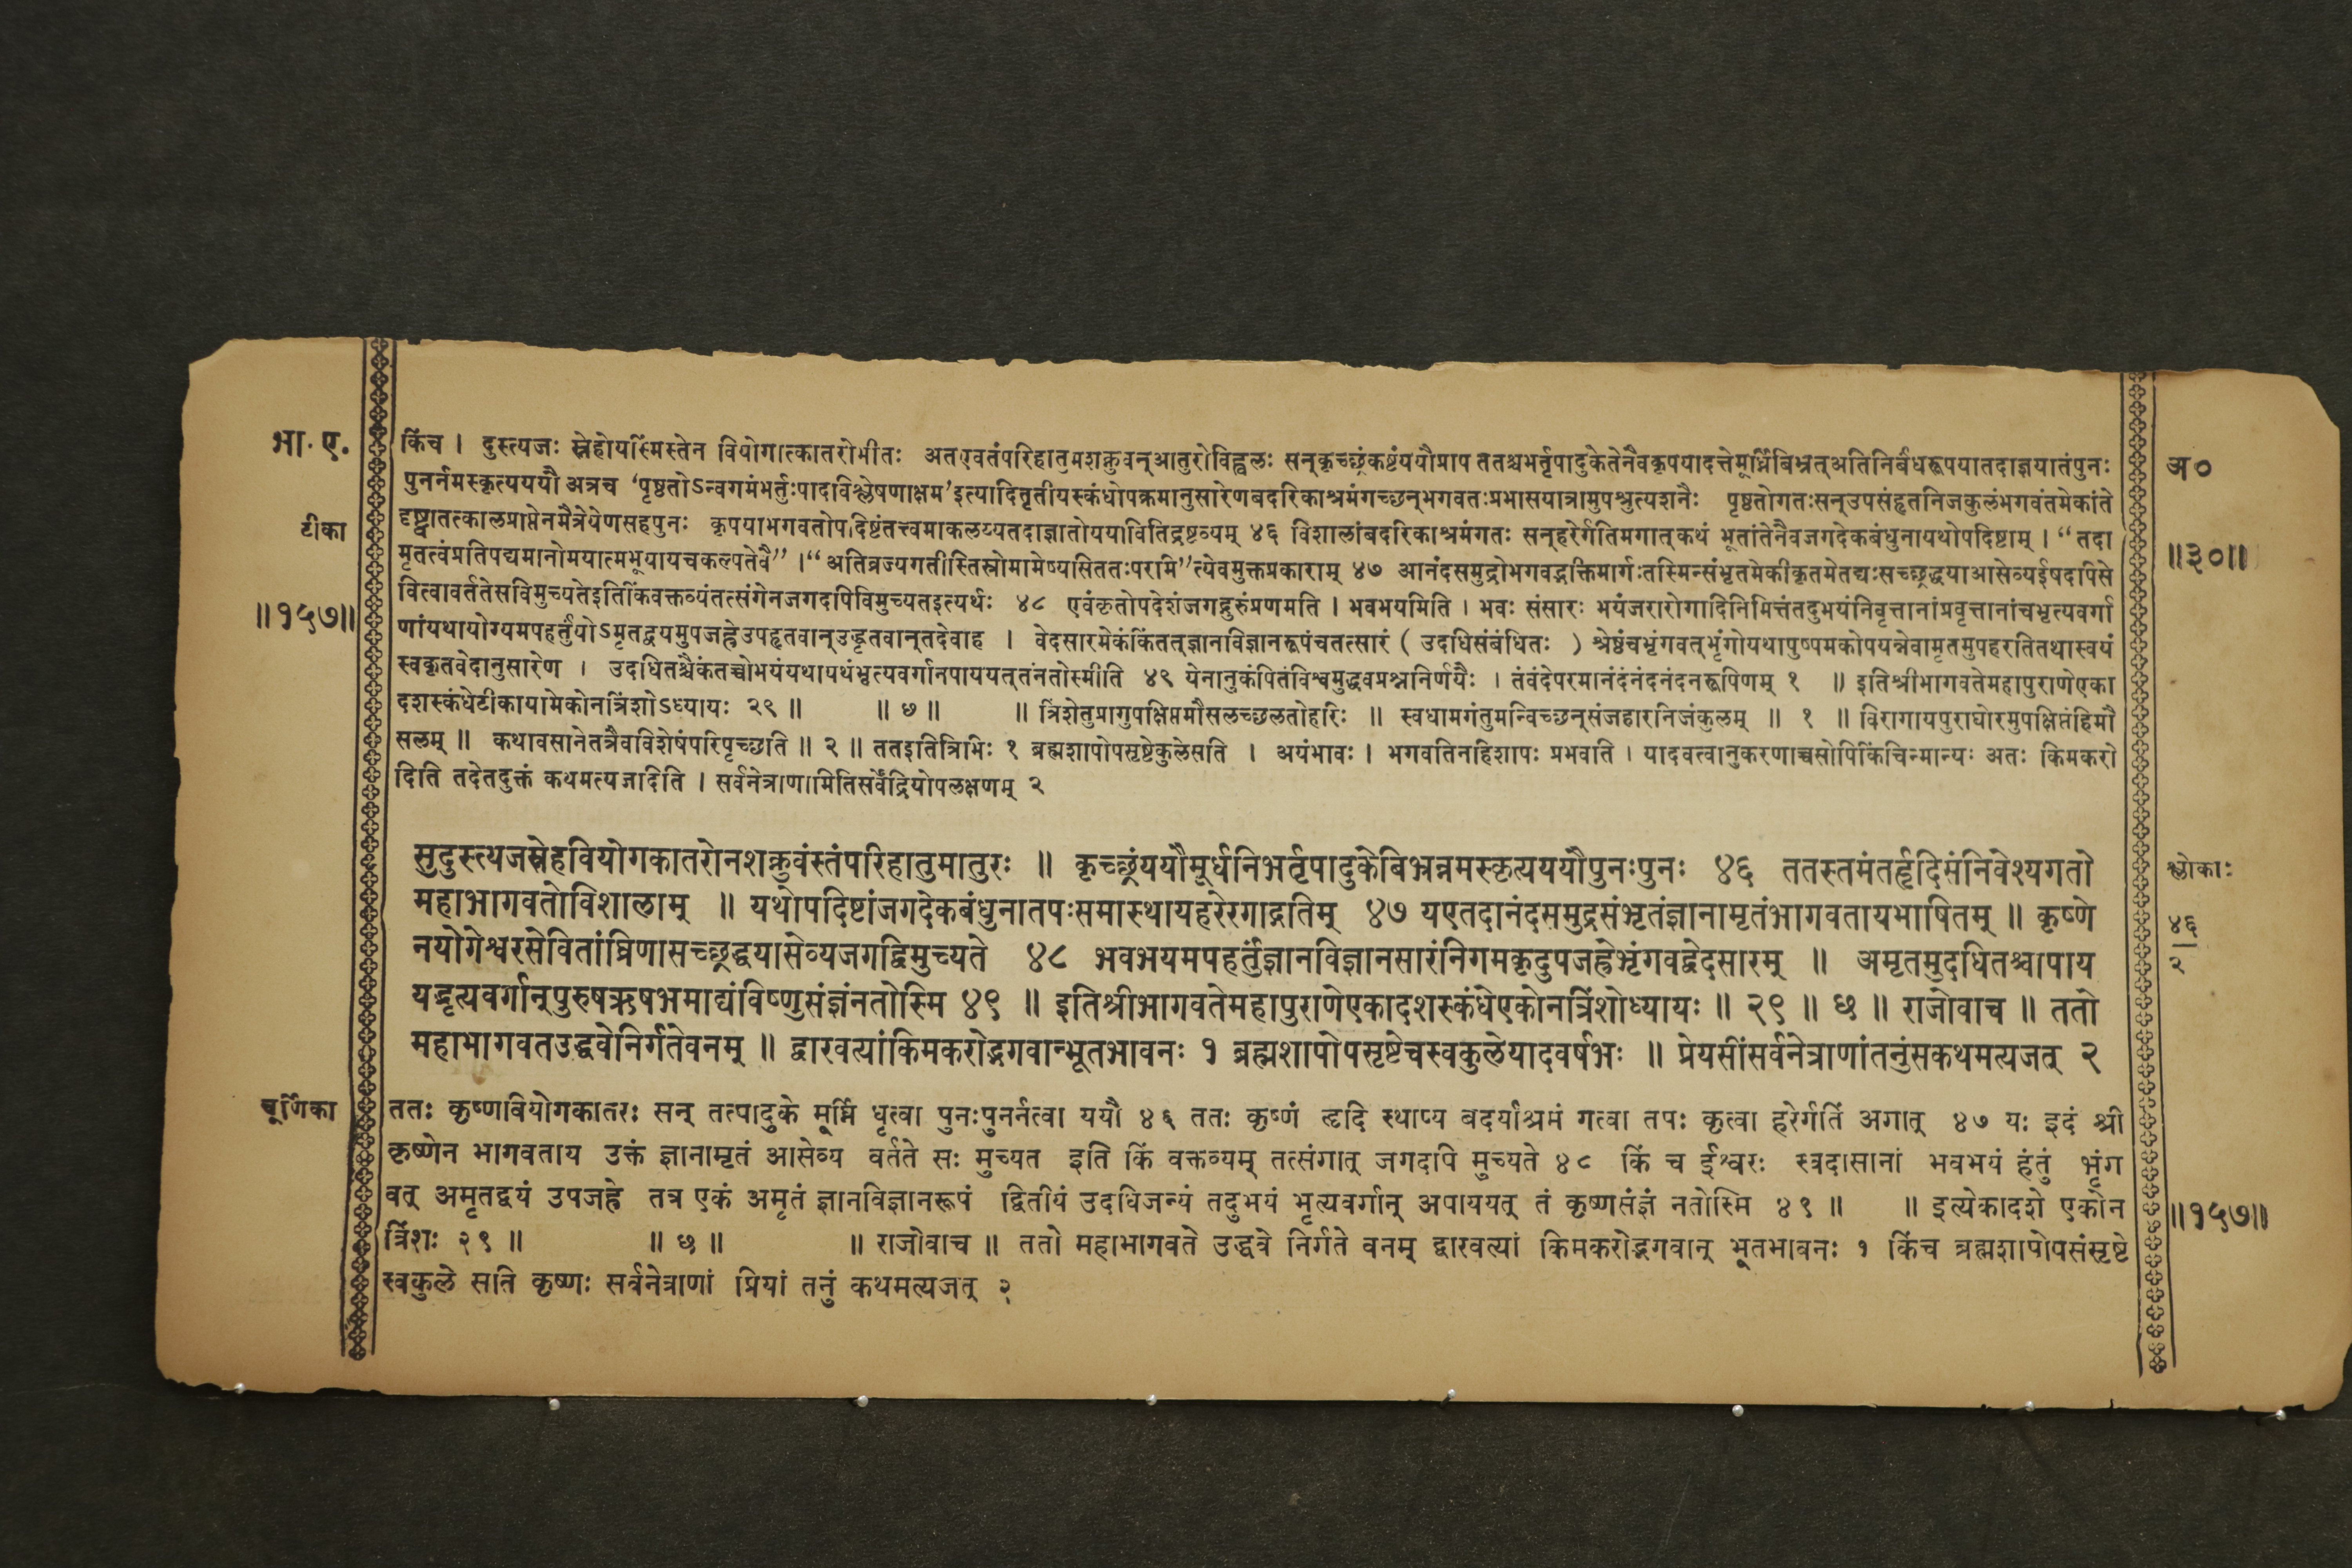 भा. ए.
किंच । दुस्त्यजः स्नेहोयस्मिंस्तेन वियोगात्कातरोभीतः अतएवतंपरिहातुमशक्नुवन्आतुरोविह्वलः सन्कृच्छ्रंकष्टंययौप्राप ततश्चभर्तृपादुकेतेनैवकृपयादत्तेमूर्ध्निबिभ्रत्अतिनिर्बंधरूपयातदाज्ञयातंपुनः
अ०
पुनर्नमस्कृत्यययौ अत्रच ‘पृष्ठतोऽन्वगमंभर्तुःपादविश्लेषणाक्षम’इत्यादितृतीयस्कंधोपक्रमानुसारेणबदरिकाश्रमंगच्छन्भगवतःप्रभासयात्रामुपश्रुत्यशनैः पृष्ठतोगतःसन्उपसंहृतनिजकुलंभगवंतमेकांते
टीका
दृष्ट्वातत्कालप्राप्तेनमैत्रेयेणसहपुनः कृपयाभगवतोपदिष्टंतत्त्वमाकलय्यतदाज्ञातोययावितिद्रष्टव्यम् ४६ विशालांबदरिकाश्रमंगतः सन्हरेर्गतिमगात्कथं भूतांतेनैवजगदेकबंधुनायथोपदिष्टाम् । “तदा
॥३०॥
मृतत्वंप्रतिपद्यमानोमयात्मभूयायचकल्पतेवै” । “अतिव्रज्यगतीस्तिस्रोमामेष्यसिततःपरामि”त्येवमुक्तप्रकाराम् ४७ आनंदसमुद्रोभगवद्भक्तिमार्गःतस्मिन्संभृतमेकीकृतमेतद्यःसच्छ्रद्धयाआसेव्यईषदपिसे
॥१५७॥
वित्वावर्ततेसविमुच्यतेइतिकिंवक्तव्यंतत्संगेनजगदपिविमुच्यतइत्यर्थः ४८ एवंकृतोपदेशंजगद्गुरुंप्रणमति । भवभयमिति । भवः संसारः भयंजरारोगादिनिमित्तंतदुभयंनिवृत्तानांप्रवृत्तानांचभृत्यवर्गा
णांयथायोग्यमपहर्तुंयोऽमृतद्वयमुपजह्रेउपहृतवान्उद्धृतवान्तदेवाह । वेदसारमेकंकिंतत्ज्ञानविज्ञानरूपंचतत्सारं ( उदधिसंबंधितः ) श्रेष्ठंचभृंगवत्भृंगोयथापुष्पमकोपयन्नेवामृतमुपहरतितथास्वयं
स्वकृतवेदानुसारेण । उदधितश्चैकंतच्चोभयंयथापथंभृत्यवर्गानपाययत्तंनतोस्मीति ४९ येनानुकंपितंविश्वमुद्धवप्रश्ननिर्णयैः । तंवंदेपरमानंदंनंदनंदनरूपिणम् १ ॥ इतिश्रीभागवतेमहापुराणेएका
दशस्कंधेटीकायामेकोनत्रिंशोऽध्यायः २९ ॥ ॥ ७ ॥ ॥ त्रिंशेतुप्रागुपक्षिप्तमौसलच्छलतोहरिः ॥ स्वधामगंतुमन्विच्छन्संजहारनिजंकुलम् ॥ १ ॥ विरागायपुराघोरमुपक्षिप्तंहिमौ
सलम् ॥ कथावसानेतत्रैवविशेषंपरिपृच्छति ॥ २ ॥ ततइतित्रिभिः १ ब्रह्मशापोपसृष्टेकुलेसति । अयंभावः । भगवतिनहिशापः प्रभवति । यादवत्वानुकरणाच्चसोपिकिंचिन्मान्यः अतः किमकरो
दिति तदेतदुक्तं कथमत्यजदिति । सर्वनेत्राणामितिसर्वेंद्रियोपलक्षणम् २
सुदुस्त्यजस्नेहवियोगकातरोनशक्नुवंस्तंपरिहातुमातुरः ॥ कृच्छ्रंययौमूर्धनिभर्तृपादुकेबिभ्रन्नमस्कृत्यययौपुनःपुनः ४६ ततस्तमंतर्हृदिसंनिवेश्यगतो
श्लोकाः
महाभागवतोविशालाम् ॥ यथोपदिष्टांजगदेकबंधुनातपःसमास्थायहरेरगाद्गतिम् ४७ यएतदानंदसमुद्रसंभृतंज्ञानामृतंभागवतायभाषितम् ॥ कृष्णे
४६
नयोगेश्वरसेवितांघ्रिणासच्छ्रद्धयासेव्यजगद्विमुच्यते ४८ भवभयमपहर्तुंज्ञानविज्ञानसारंनिगमकृदुपजह्रेभृंगवद्वेदसारम् ॥ अमृतमुदधितश्चापाय
२
यद्भृत्यवर्गान्पुरुषऋषभमाद्यंविष्णुसंज्ञंनतोस्मि ४९ ॥ इतिश्रीभागवतेमहापुराणेएकादशस्कंधेएकोनत्रिंशोध्यायः ॥ २९ ॥ छ ॥ राजोवाच ॥ ततो
महाभागवतउद्धवेनिर्गतेवनम् ॥ द्वारवत्यांकिमकरोद्भगवान्भूतभावनः १ ब्रह्मशापोपसृष्टेचस्वकुलेयादवर्षभः ॥ प्रेयसींसर्वनेत्राणांतनुंसकथमत्यजत् २
चूर्णिका
ततः कृष्णवियोगकातरः सन् तत्पादुके मूर्ध्नि धृत्वा पुनःपुनर्नत्वा ययौ ४६ ततः कृष्णं हृदि स्थाप्य बदर्याश्रमं गत्वा तपः कृत्वा हरेर्गतिं अगात् ४७ यः इदं श्री
कृष्णेन भागवताय उक्तं ज्ञानामृतं आसेव्य वर्तते सः मुच्यत इति किं वक्तव्यम् तत्संगात् जगदपि मुच्यते ४८ किं च ईश्वरः स्वदासानां भवभयं हंतुं भृंग
वत् अमृतद्वयं उपजह्रे तत्र एकं अमृतं ज्ञानविज्ञानरूपं द्वितीयं उदधिजन्यं तदुभयं भृत्यवर्गान् अपाययत् तं कृष्णसंज्ञं नतोस्मि ४९ ॥ ॥ इत्येकादशे एकोन
॥१५७॥
त्रिंशः २९ ॥ ॥ छ ॥ ॥ राजोवाच ॥ ततो महाभागवते उद्धवे निर्गते वनम् द्वारवत्यां किमकरोद्भगवान् भूतभावनः १ किंच ब्रह्मशापोपसंसृष्टे
स्वकुले सति कृष्णः सर्वनेत्राणां प्रियां तनुं कथमत्यजत् २